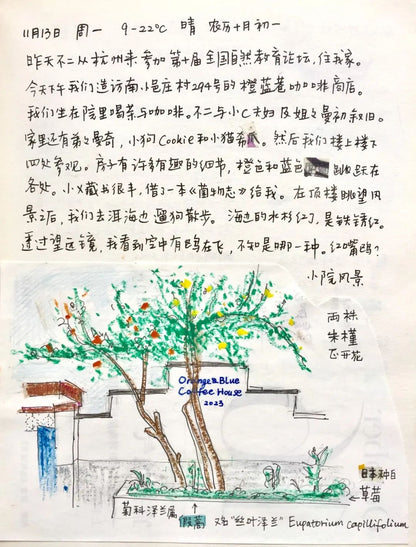 11月13日 周一 9-22℃ 晴 农历十月初一
昨天不二从杭州来参加第十届全国自然教育论坛,住我家。
今天下午我们造访南小邑庄村294号的橙蓝巷咖啡商店。
我们坐在院里喝茶与咖啡。不二与小C夫妇及姐文曼初叙旧。
家里还有弟文曼奇,小狗Cookie和小猫希瓜。然后我们楼上楼下
四处参观。房子有许多有趣的细节,橙色和蓝色 跳跃在
各处。小X藏书很丰,借了一本《菌物志》给我。在顶楼眺望风
景之后,我们去洱海边遛狗散步。海边的水杉红了,是铁锈红。
透过望远镜,我看到空中有鸥在飞,不知是哪一种。红嘴鸥?
小院风景
两株
朱槿
正开花
Orange & Blue
Coffee House
2023
日本种自
草莓
菊科泽兰属
假蒿 又名“丝叶泽兰” Eupatorium capillifolium